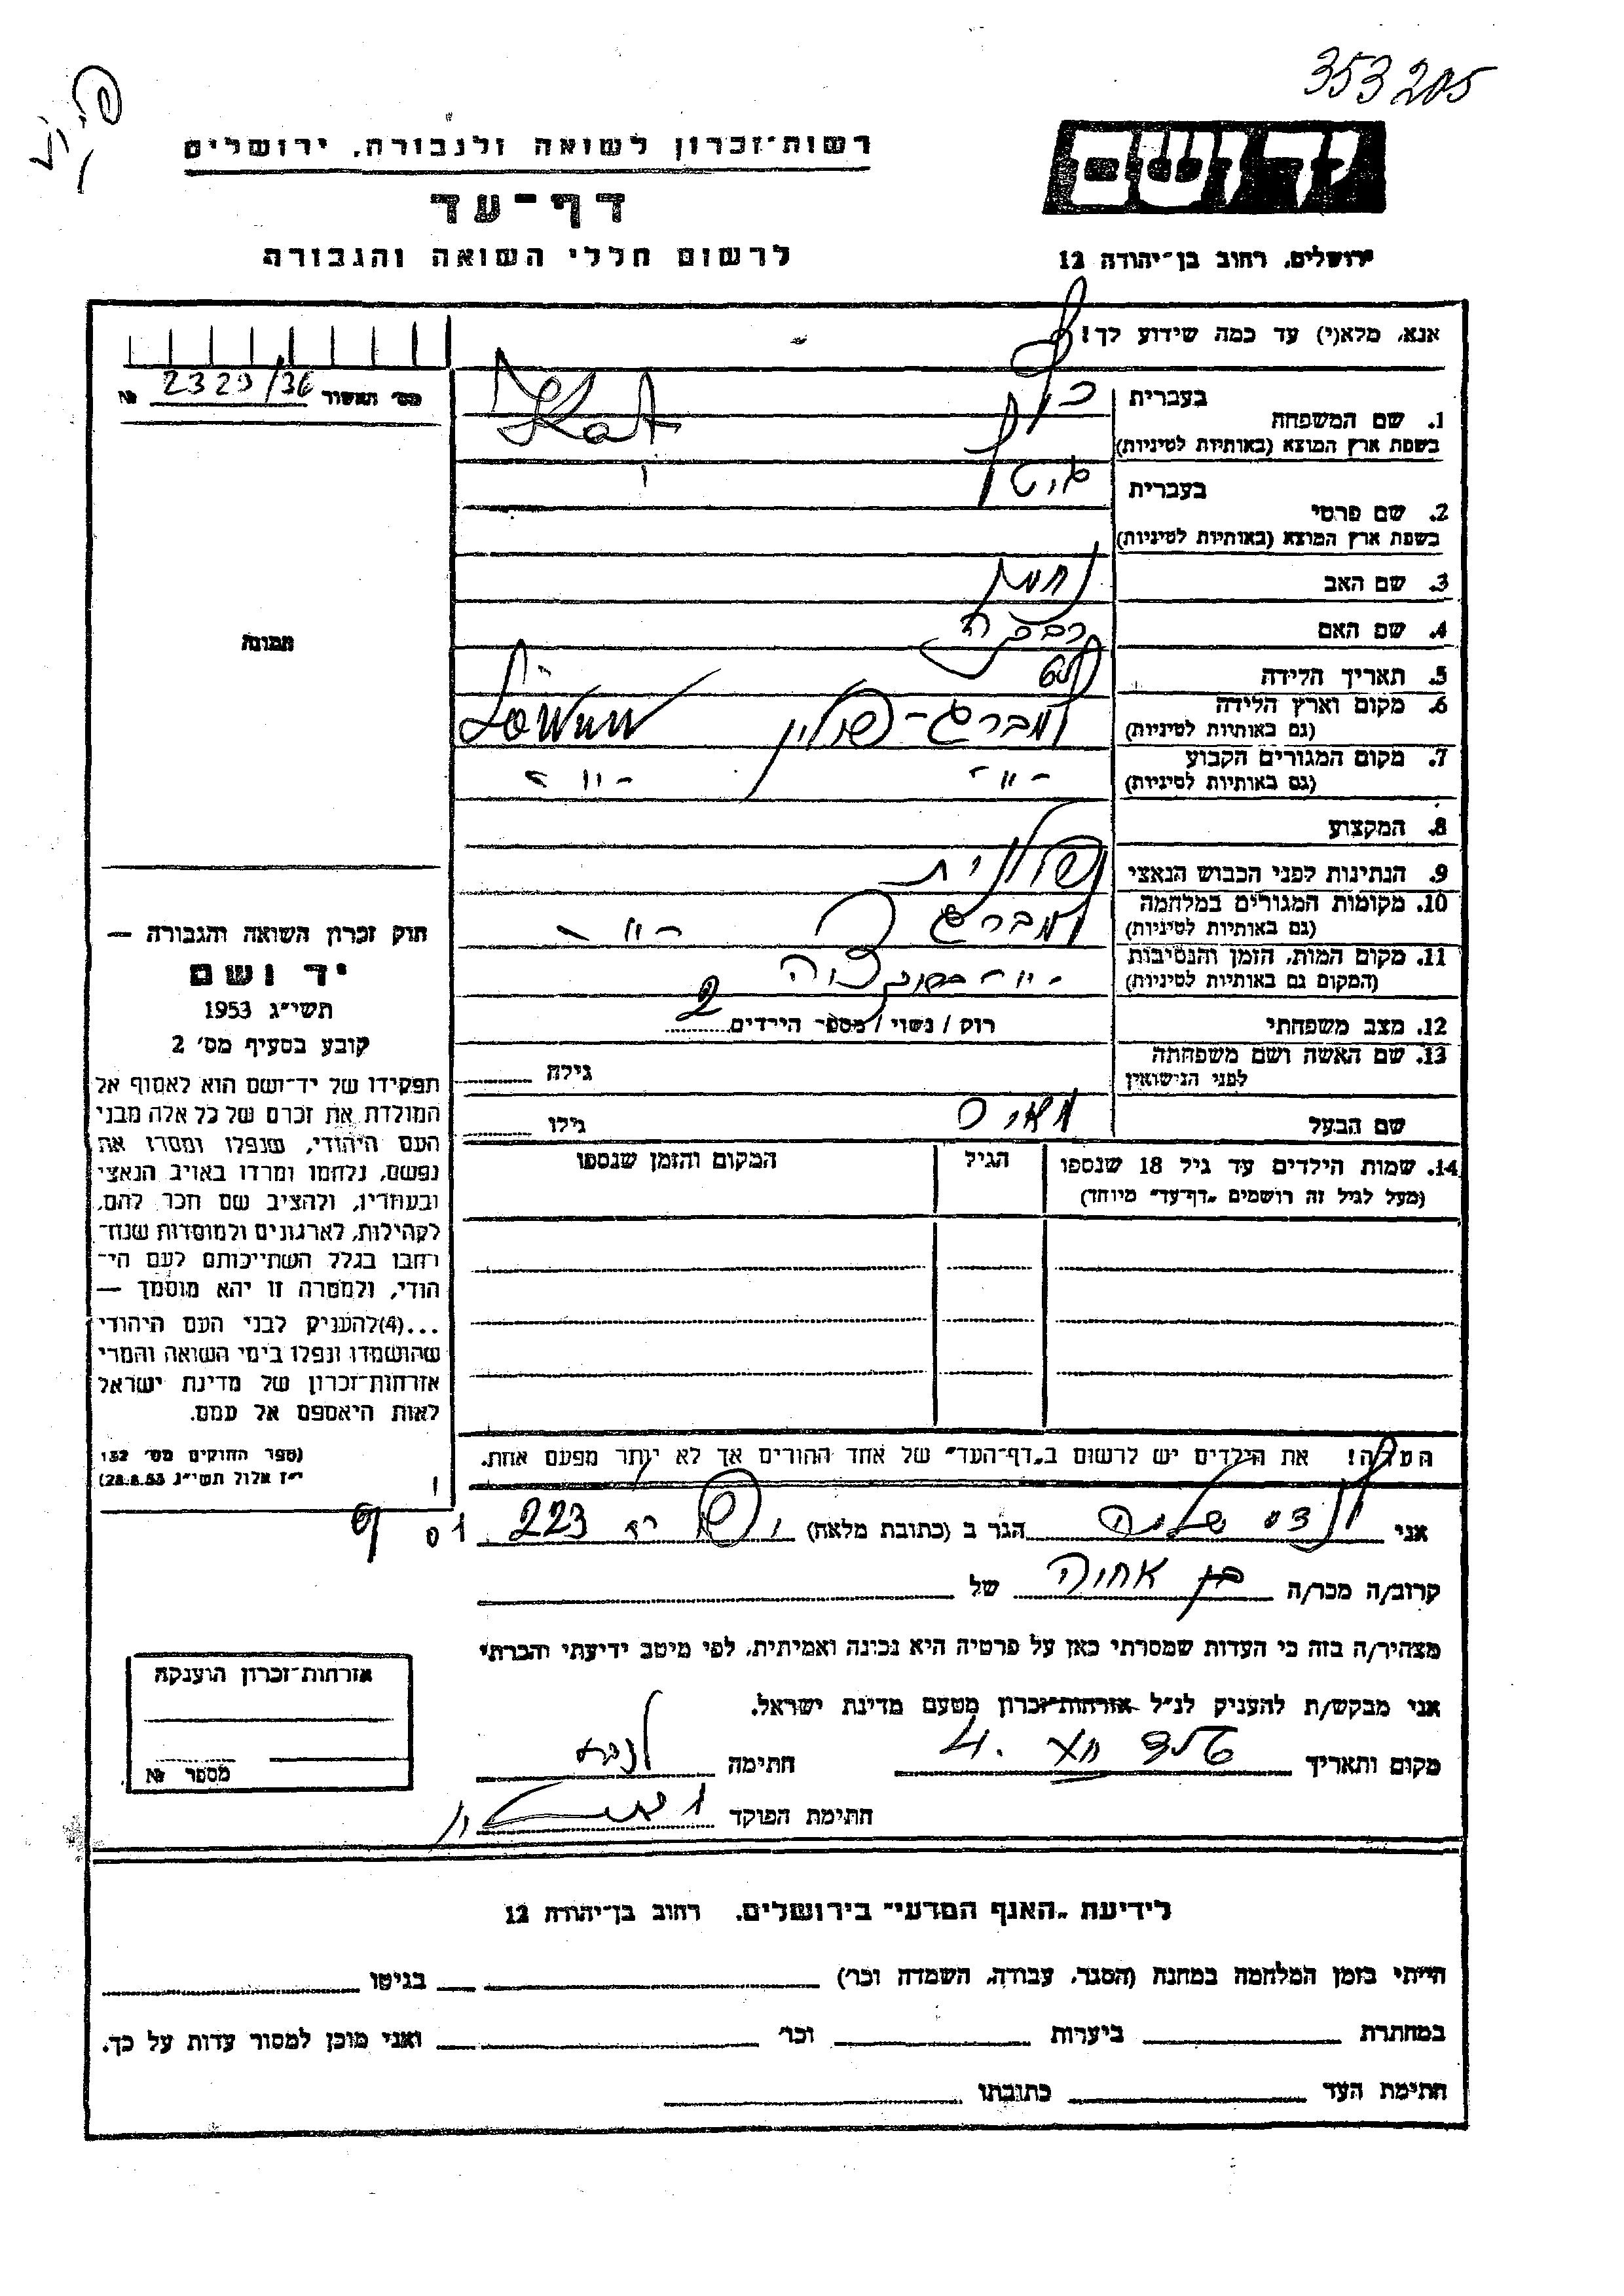 353205
רשות־זכרון לשואה ולגבורה, ירושלים
דף־עד
לרשום חללי השואה והגבורה
ירושלים, רחוב בן־יהודה 12
אנא, מלא(י) עד כמה שידוע לך!
מס' האשור 2329/36 №
1. שם המשפחה
בעברית
בשפת ארץ המוצא (באותיות לטיניות)
2. שם פרטי
בעברית
בשפת ארץ המוצא (באותיות לטיניות)
3. שם האב
4. שם האם רבקה
5. תאריך הלידה
6. מקום וארץ הלידה למברג - פולין
(גם באותיות לטיניות)
7. מקום המגורים הקבוע - " - - " -
(גם באותיות לטיניות)
8. המקצוע
9. הנתינות לפני הכבוש הנאצי פולנית
10. מקומות המגורים במלחמה למברג - " -
(גם באותיות לטיניות)
11. מקום המות, הזמן והנסיבות - " -
(המקום גם באותיות לטיניות)
12. מצב משפחתי רוק / נשוי / מספר הילדים 2
13. שם האשה ושם משפחתה גילה
לפני הנישואין
שם הבעל גילו
14. שמות הילדים עד גיל 18 שנספו הגיל המקום והזמן שנספו
(מעל לגיל זה רושמים "דף־עד" מיוחד)
תמונה
חוק זכרון השואה והגבורה —
יד ושם
תשי"ג 1953
קובע בסעיף מס' 2
תפקידו של יד־ושם הוא לאסוף אל
המולדת את זכרם של כל אלה מבני
העם היהודי, שנפלו ומסרו את
נפשם, נלחמו ומרדו באויב הנאצי
ובעוזריו, ולהציב שם וזכר להם,
לקהילות, לארגונים ולמוסדות שנח־
רבו בגלל השתייכותם לעם הי־
הודי, ולמטרה זו יהא מוסמך —
...(4) להעניק לבני העם היהודי
שהושמדו ונפלו בימי השואה והמרי
אזרחות־זכרון של מדינת ישראל
לאות היאספם אל עמם.
(ספר החוקים מס' 132
י"ז אלול תשי"ג 28.8.53)
הערה! את הילדים יש לרשום ב"דף־העד" של אחד ההורים אך לא יותר מפעם אחת.
אני הגר ב (כתובת מלאה) 223
קרוב/ה מכר/ה בן אחיה של
מצהיר/ה בזה כי העדות שמסרתי כאן על פרטיה היא נכונה ואמיתית, לפי מיטב ידיעתי והכרתי
אני מבקש/ת להעניק לנ"ל אזרחות־זכרון מטעם מדינת ישראל.
מקום ותאריך חתימה
חתימת הפוקד
אזרחות־זכרון הוענקה
מספר №
לידיעת "האגף המדעי" בירושלים, רחוב בן־יהודה 12
הייתי בזמן המלחמה במחנה (הסגר, עבודה, השמדה וכו') בגיטו
במחתרת ביערות וכו' ואני מוכן למסור עדות על כך.
חתימת העד כתובתו